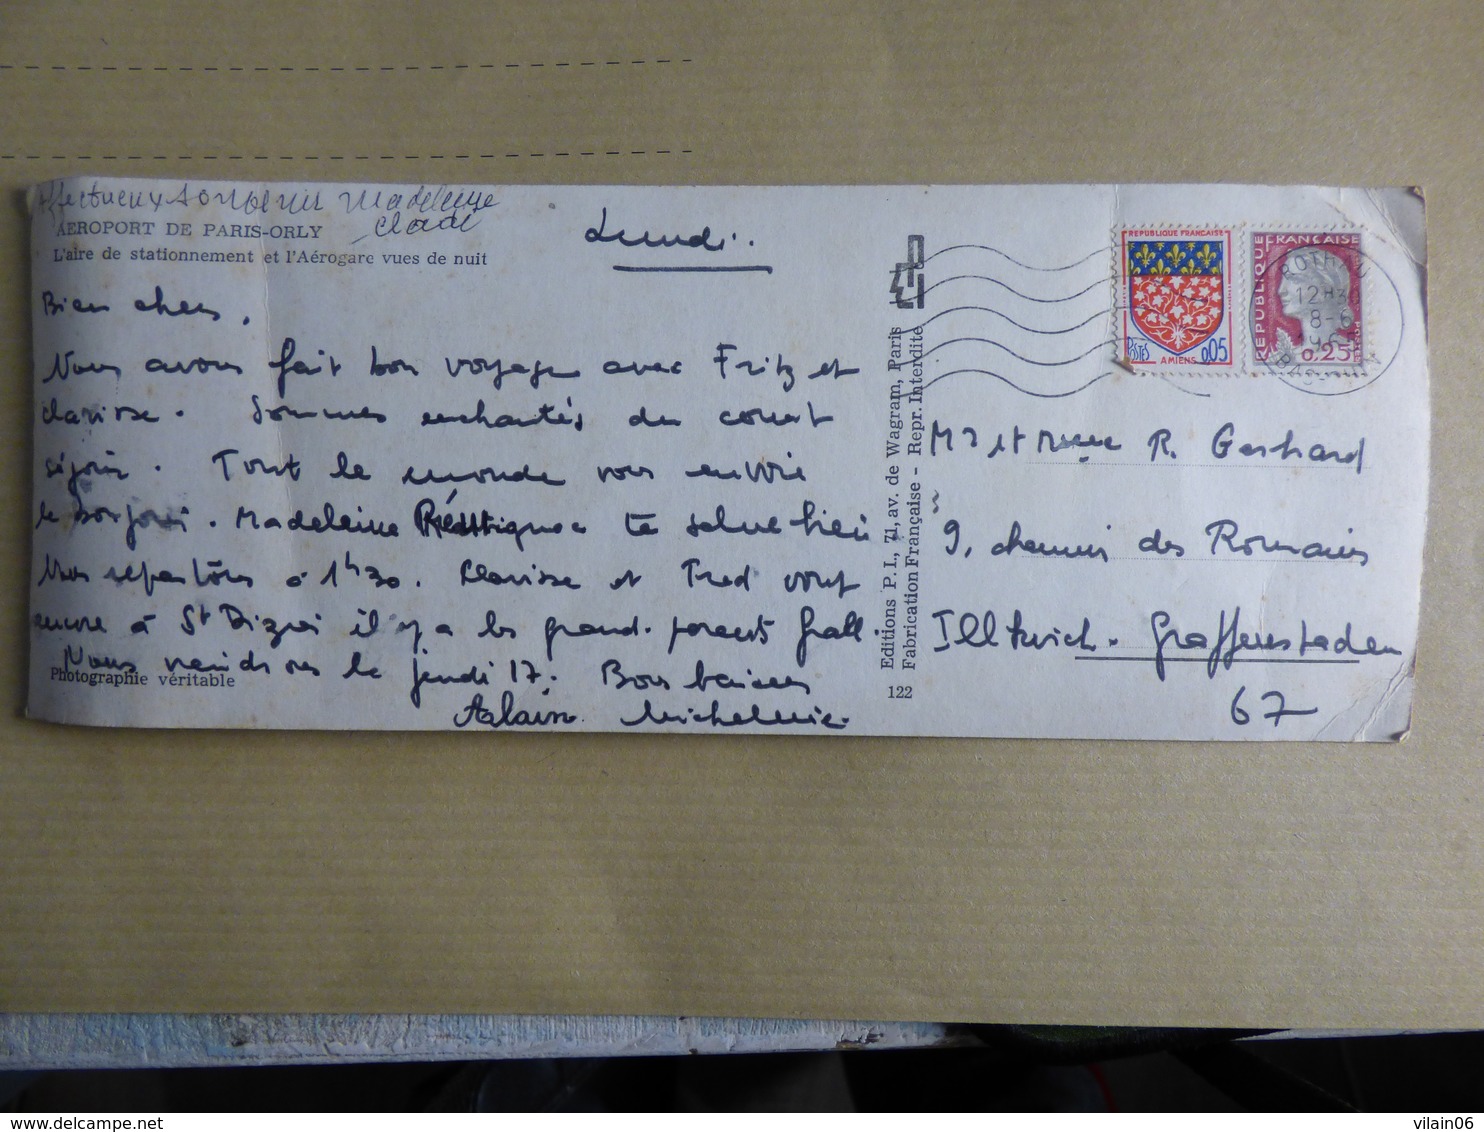 Affectueux souvenir Madeleine
Claude
AÉROPORT DE PARIS-ORLY
L'aire de stationnement et l'Aérogare vues de nuit
Lundi.
Bien chers,
Nous avons fait bon voyage avec Fritz et
Clarisse. Sommes enchantés du court
séjour. Tout le monde vous envoie
le bonjour. Madeleine te salue bien
Nous repartons à 1h30. Clarisse et Fred vont
encore à St Dizier il y a les grands-parents
Nous viendrons le jeudi 17. Bons baisers
Photographie véritable
Alain Michelmic.
Editions P. I., 71, av. de Wagram, Paris
Fabrication Française - Repr. Interdite
122
REPUBLIQUE FRANÇAISE
POSTES
AMIENS
0,05
REPUBLIQUE FRANÇAISE
POSTES
0,25
ROTHAU
12H30
8-6
BAS-RHIN
Mr et Mme R. Gerhard
9, chemin des Romains
Illkirch-Graffenstaden
67
vilain06